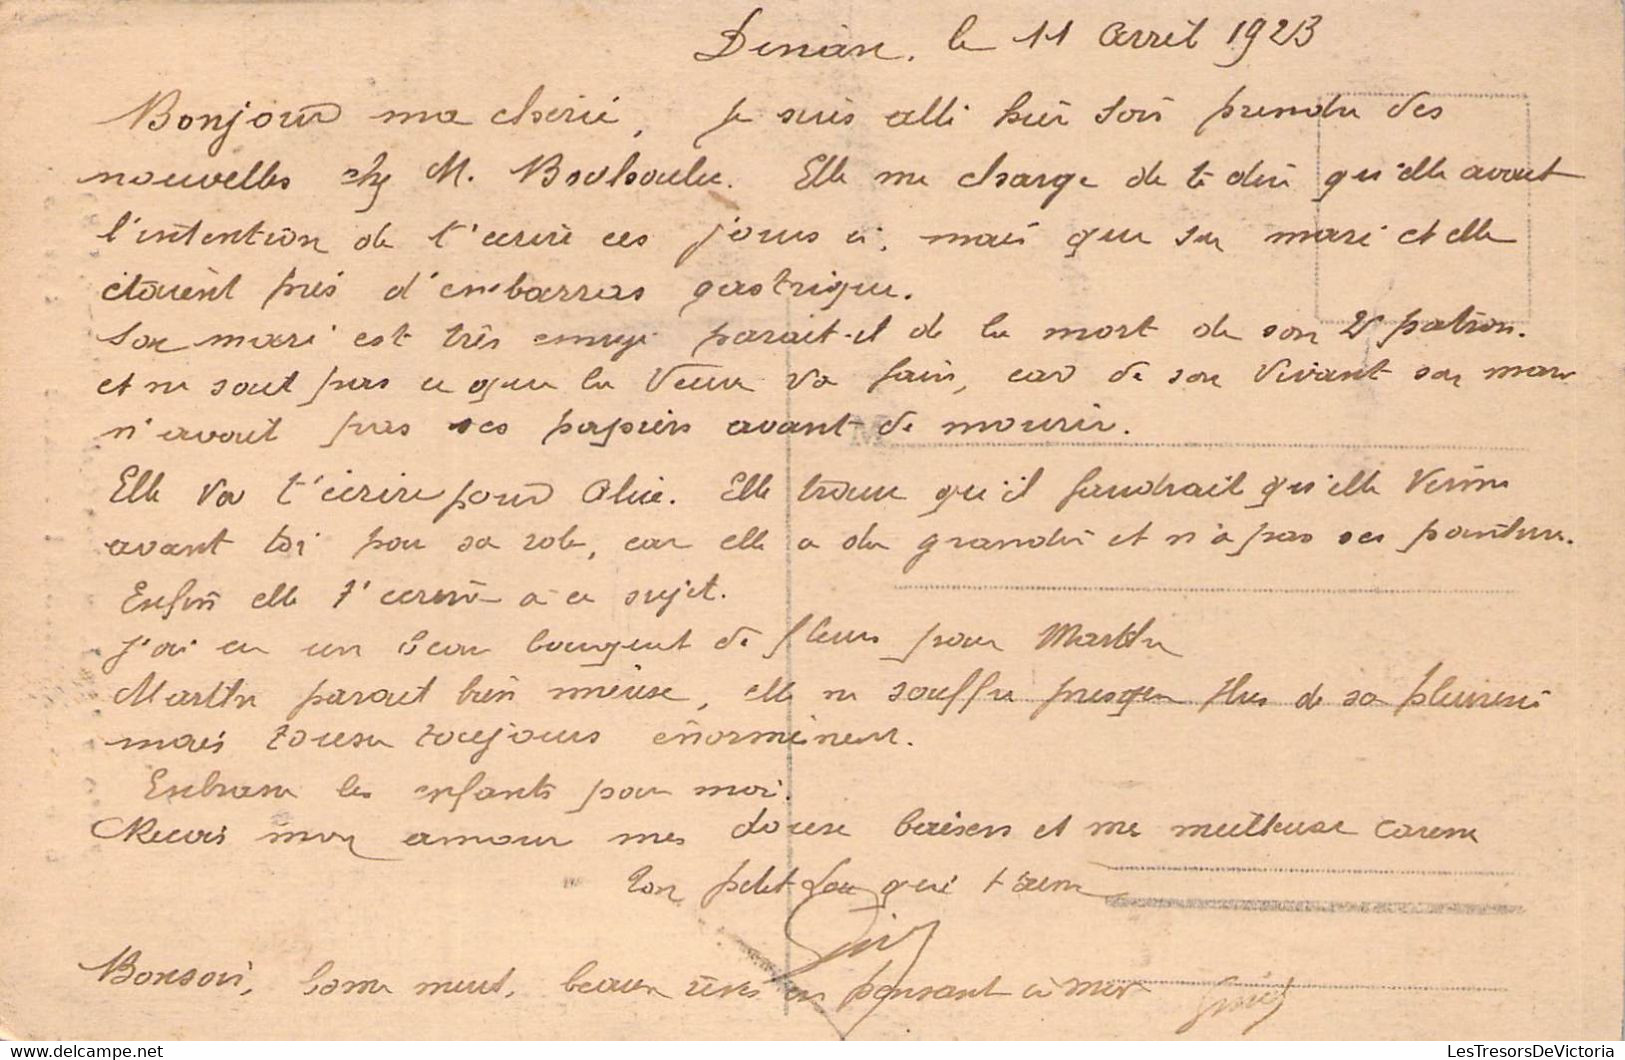 Dinan, le 11 Avril 1923
Bonjour ma chérie, je suis allé hier soir prendre des
nouvelles chez M. Elle me charge de te dire qu'elle avait
l'intention de t'écrire ces jours ci, mais que son mari et elle
étaient pris d'embarras gastrique.
Son mari est très ennuyé parait-il de la mort de son patron.
et ne sait pas ce que la Veuve va faire, car de son vivant son mari
n'avait pas ses papiers avant de mourir.
Elle va t'écrire pour Alice. Elle trouve qu'il faudrait qu'elle vienne
avant toi pour sa robe, car elle a du grandir et n'a pas ses pointures.
Enfin elle t'écrira à ce sujet.
J'ai eu un beau bouquet de fleurs pour Marthe
Marthe parait bien mieux, elle ne souffre presque plus de sa pleurésie
mais tousse toujours énormément.
Embrasse les enfants pour moi.
Recois mon amour mes doux baisers et ma meilleure caresse
Ton petit Lou qui t'aime
Bonsoir, bonne nuit, beaux rêves en pensant à moi
M
LesTresorsDeVictoria